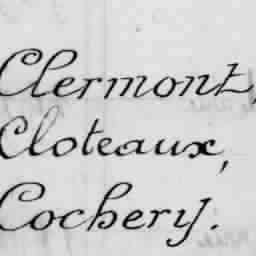 Clermont,
Cloteaux,
Cochery.